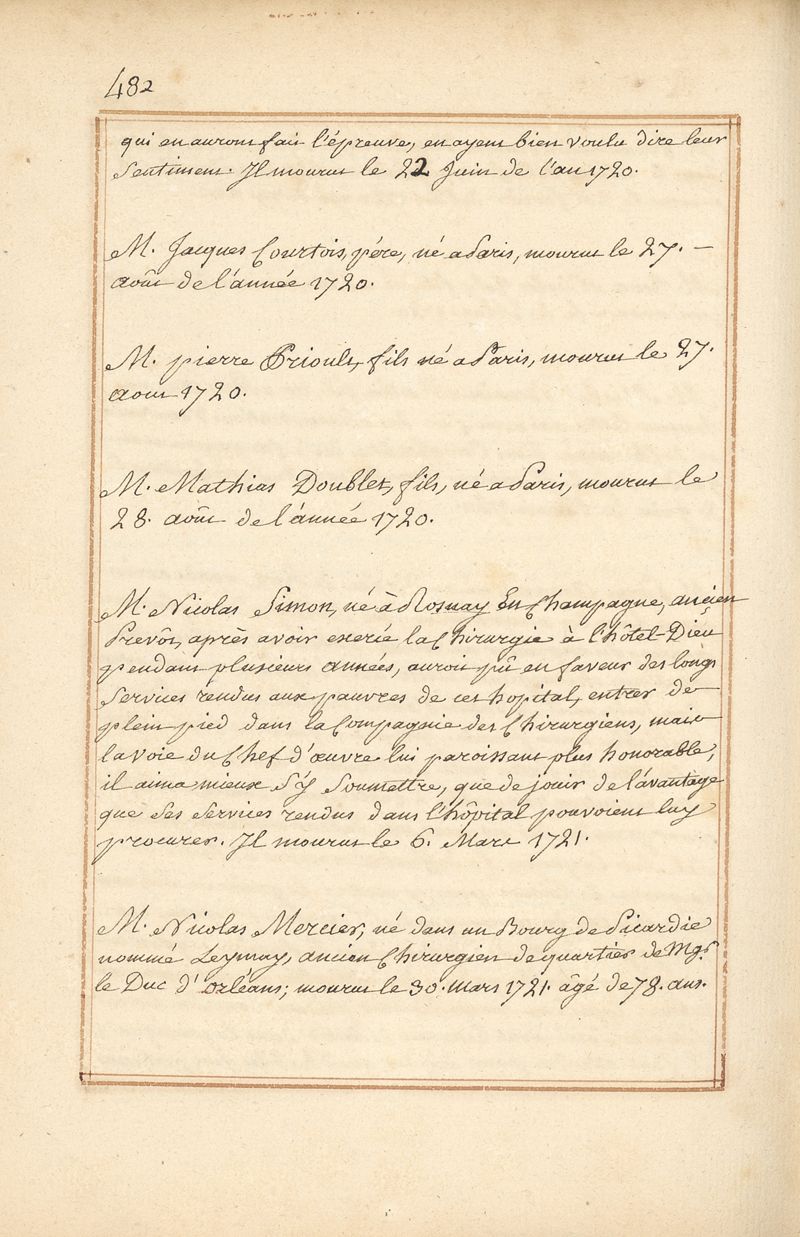 482
qui en auront fait l'épreuve, en ayent bien voulu dire leur
Sentiment. Il mourut le 22 Juin de l'an 1720.
M. Jacques Courtois, pére, né a Paris, mourut le 27. —
août de l'année 1720.
M. pierre Prioult, fils né a Paris, mourut le 27.
aout 1720.
M. Mathias Doublet, fils, né a Paris, mourut le
28. août de l'année 1720.
M. Nicolas Simon, né à Rosnay En Champagne, ancien
Prevôt, après avoir exercé la Chirurgie à l'hôtel-Dieu
pendant plusieurs années, auroit pû en faveur des longs
Services rendus aux pauvres de cet hopital, entrer de
plein pied dans la Compagnie des Chirurgiens, mais
la voie du Chef d'œuvre lui paroissant plus honorable,
il aima mieux S'y Soumettre, que de jouir de l'avantage
que Ses Services rendus dans l'hôpital pouvoient luy
procurer. Il mourut le 6. Mars 1721.
M. Nicolas Mercier, né dans un Bourg de Picardie
nommé Leymay, ancien Chirurgien de quartier de Mgr.
le Duc d'Orléans; mourut le 30. Mars 1721. âgé de 78. ans.